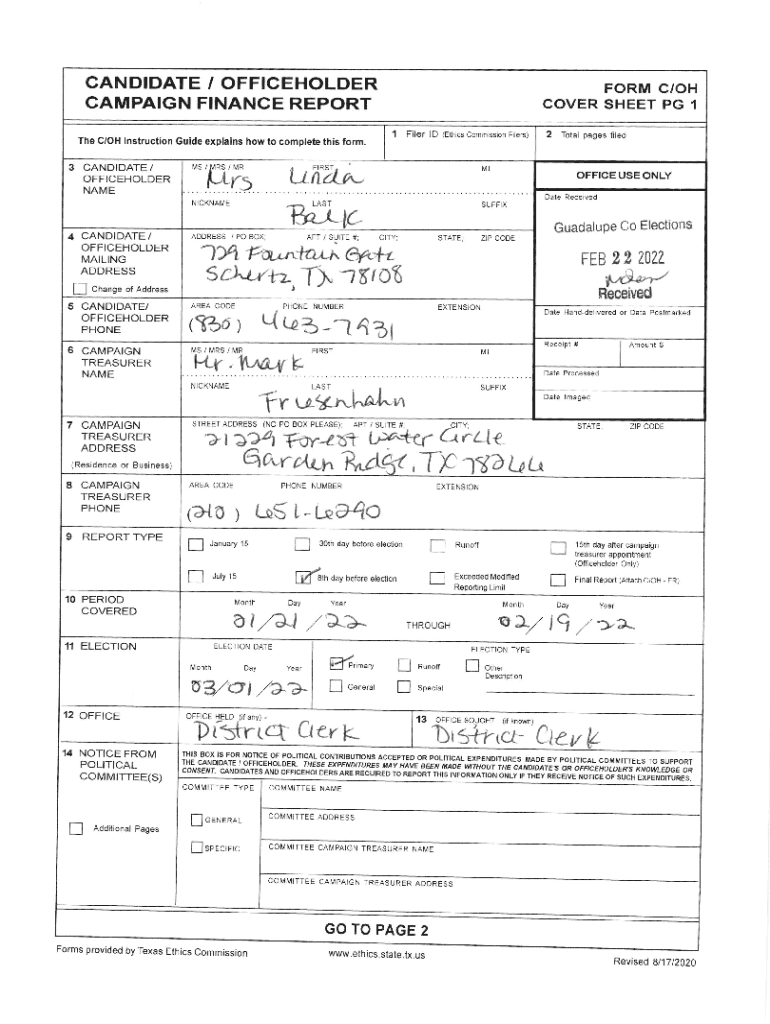 CANDIDATE / OFFICEHOLDER
CAMPAIGN FINANCE REPORT
FORM C/OH
COVER SHEET PG 1
The C/OH Instruction Guide explains how to complete this form.
1 Filer ID (Ethics Commission Filers)
2 Total pages filed
3 CANDIDATE / OFFICEHOLDER NAME
MS / MRS / MR FIRST MI
Mrs Linda
NICKNAME LAST SUFFIX
Balk
OFFICE USE ONLY
Date Received
Guadalupe Co Elections
FEB 22 2022
Received
4 CANDIDATE / OFFICEHOLDER MAILING ADDRESS
Change of Address
ADDRESS / PO BOX; APT / SUITE #; CITY; STATE; ZIP CODE
729 Fountain Gate
Schertz, TX 78108
5 CANDIDATE/ OFFICEHOLDER PHONE
AREA CODE PHONE NUMBER EXTENSION
(830) 463-7931
Date Hand-delivered or Date Postmarked
Receipt # Amount $
Date Processed
Date Imaged
6 CAMPAIGN TREASURER NAME
MS / MRS / MR FIRST MI
Mr. Mark
NICKNAME LAST SUFFIX
Friesenhahn
7 CAMPAIGN TREASURER ADDRESS
(Residence or Business)
STREET ADDRESS (NO PO BOX PLEASE); APT / SUITE #; CITY; STATE; ZIP CODE
21229 Forest Water Circle
Garden Ridge, TX 78266
8 CAMPAIGN TREASURER PHONE
AREA CODE PHONE NUMBER EXTENSION
(210) 651-6290
9 REPORT TYPE
January 15 30th day before election Runoff 15th day after campaign treasurer appointment (Officeholder Only)
July 15 8th day before election Exceeded Modified Reporting Limit Final Report (Attach C/OH - FR)
10 PERIOD COVERED
Month Day Year Month Day Year
01/21/22 THROUGH 02/19/22
11 ELECTION
ELECTION DATE ELECTION TYPE
Month Day Year
03/01/22
Primary Runoff Other Description
General Special
12 OFFICE
OFFICE HELD (if any)
District Clerk
13 OFFICE SOUGHT (if known)
District Clerk
14 NOTICE FROM POLITICAL COMMITTEE(S)
THIS BOX IS FOR NOTICE OF POLITICAL CONTRIBUTIONS ACCEPTED OR POLITICAL EXPENDITURES MADE BY POLITICAL COMMITTEES TO SUPPORT
THE CANDIDATE / OFFICEHOLDER. THESE EXPENDITURES MAY HAVE BEEN MADE WITHOUT THE CANDIDATE'S OR OFFICEHOLDER'S KNOWLEDGE OR
CONSENT. CANDIDATES AND OFFICEHOLDERS ARE REQUIRED TO REPORT THIS INFORMATION ONLY IF THEY RECEIVE NOTICE OF SUCH EXPENDITURES.
COMMITTEE TYPE COMMITTEE NAME
GENERAL
COMMITTEE ADDRESS
Additional Pages
SPECIFIC
COMMITTEE CAMPAIGN TREASURER NAME
COMMITTEE CAMPAIGN TREASURER ADDRESS
GO TO PAGE 2
Forms provided by Texas Ethics Commission www.ethics.state.tx.us Revised 8/17/2020